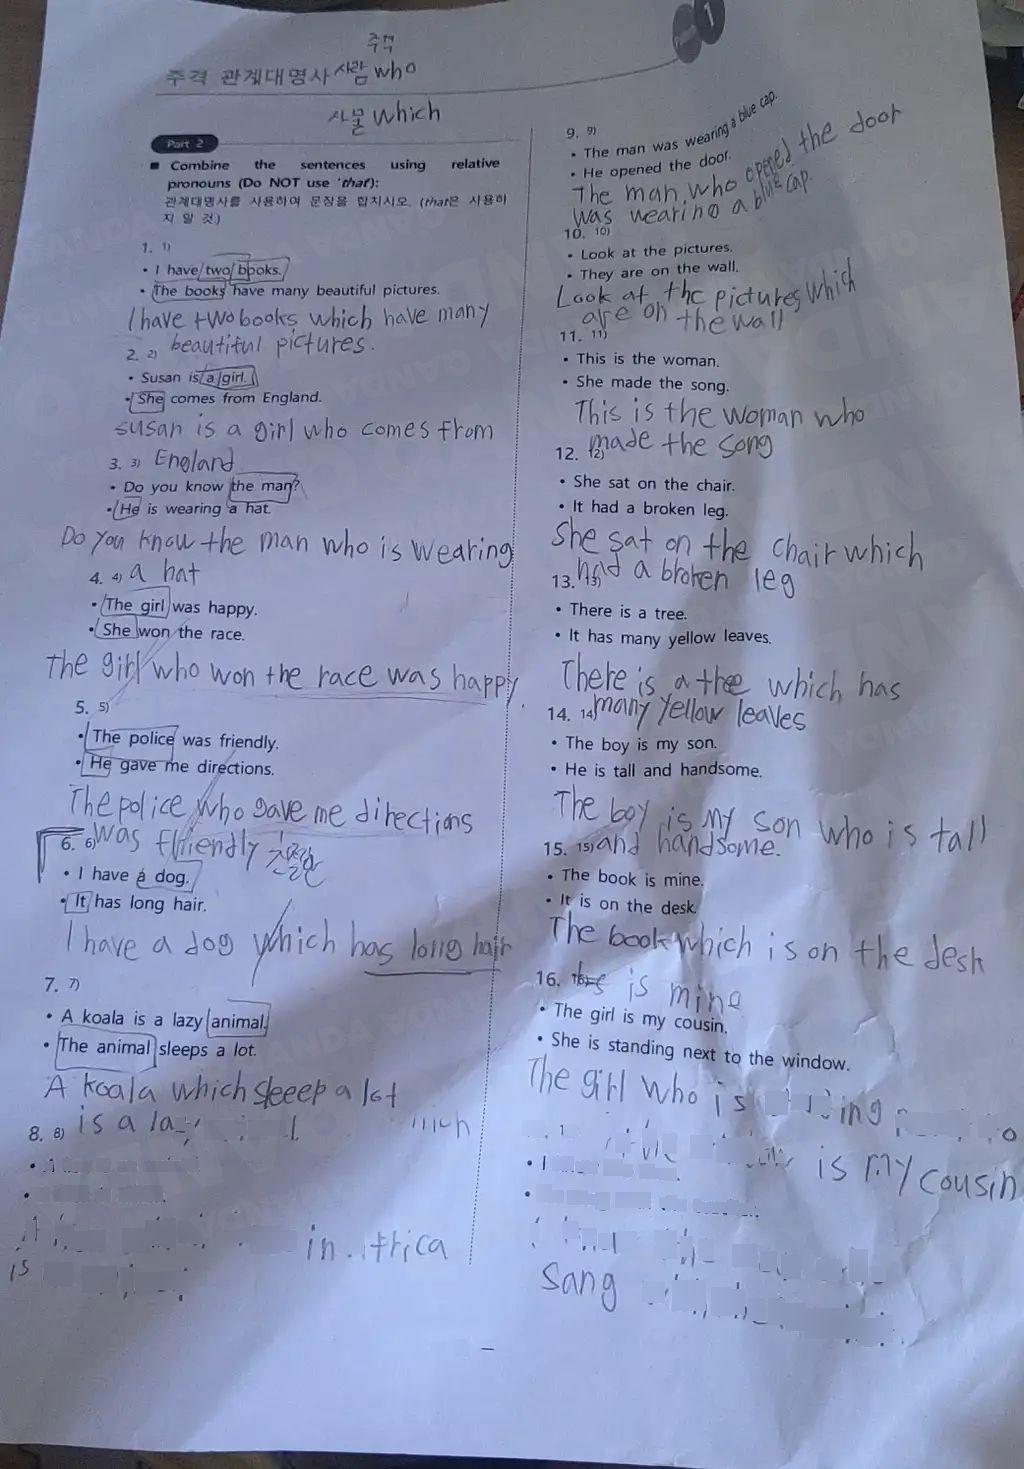 주격
주격 관계대명사 사람 who
사물 which
1
Part 2
■ Combine the sentences using relative
pronouns (Do NOT use 'that'):
관계대명사를 사용하여 문장을 합치시오. (that은 사용하
지 말 것.)
1. 1)
• I have two books.
• The books have many beautiful pictures.
I have two books which have many
beautiful pictures.
2. 2)
• Susan is a girl.
• She comes from England.
susan is a girl who comes from
England
3. 3)
• Do you know the man?
• He is wearing a hat.
Do you know the man who is wearing
a hat
4. 4)
• The girl was happy.
• She won the race.
the girl who won the race was happy.
5. 5)
• The police was friendly.
• He gave me directions.
The police who gave me directions
was friendly 친절한
6. 6)
• I have a dog.
• It has long hair.
I have a dog which has long hair
7. 7)
• A koala is a lazy animal.
• The animal sleeps a lot.
A koala which sleeep a lot
is a
8. 8)
in
is
9. 9)
• The man was wearing a blue cap.
• He opened the door.
The man who opened the door
was wearing a blue cap.
10. 10)
• Look at the pictures.
• They are on the wall.
Look at the pictures which
are on the wall
11. 11)
• This is the woman.
• She made the song.
This is the woman who
made the song
12. 12)
• She sat on the chair.
• It had a broken leg.
She sat on the chair which
had a broken leg
13. 13)
• There is a tree.
• It has many yellow leaves.
There is a tree which has
many yellow leaves
14. 14)
• The boy is my son.
• He is tall and handsome.
The boy is my son who is tall
and handsome.
15. 15)
• The book is mine.
• It is on the desk.
The book which is on the desk
is mine
16. 16)
• The girl is my cousin.
• She is standing next to the window.
The girl who is
is my cousin
sang